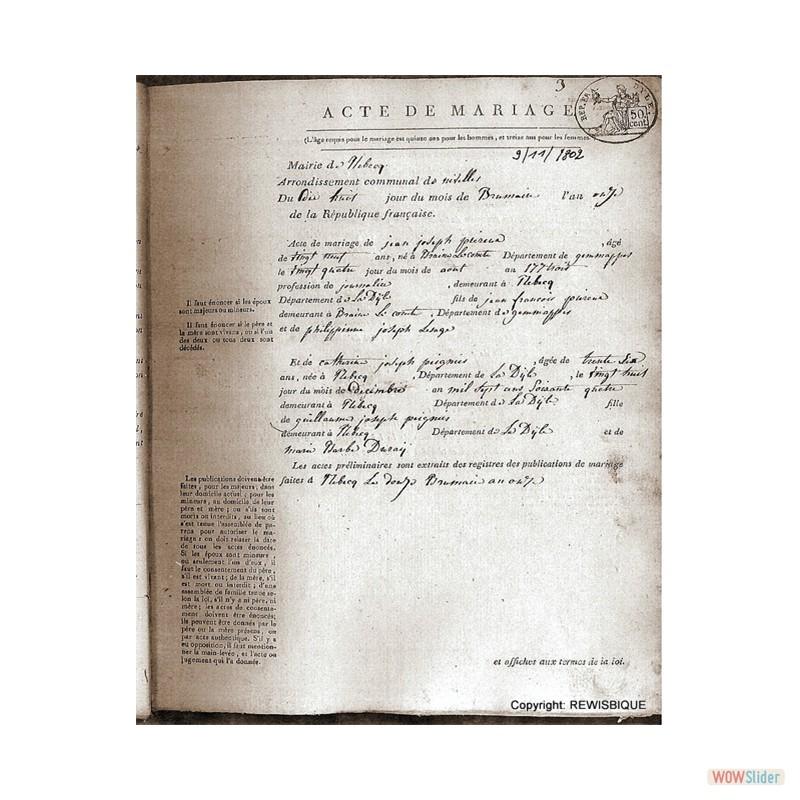 3
ACTE DE MARIAGE
REP. FRA
DYLE
50
cent.
(L'âge requis pour le mariage est quinze ans pour les hommes, et treize ans pour les femmes
9/11/1802
Mairie de Rebecq
Arrondissement communal de nivelles
Du dix huit jour du mois de Brumaire l'an onze
de la République française.
Acte de mariage de jean joseph , âgé
de vingt neuf ans, né à Braine Le comte Département de gemmappes
le vingt quatre jour du mois de aout an
profession de journalier , demeurant à Rebecq
Département de La Dyle fils de jean francois
demeurant à Braine Le comte , Département de gemmappes
et de philippinne joseph
Il faut énoncer si les époux
sont majeurs ou mineurs.
Il faut énoncer si le père et
la mère sont vivans, ou si l'un
des deux ou tous deux sont
décédés.
Et de catherine joseph peignies , âgée de trente six
ans, née à Rebecq Département de La Dyle , le vingt huit
jour du mois de Decembre an mil sept ans soixante quatre
demeurant à Rebecq Département de La Dyle fille
de guillaume joseph peignies
demeurant à Rebecq Département de La Dyle et de
marie Barbe
Les actes préliminaires sont extraits des registres des publications de mariage
faites à Rebecq Le douze Brumaire an onze
Les publications doivent être
faites, pour les majeurs, dans
leur domicile actuel; pour les
mineurs, au domicile de leur
père et mère; ou s'ils sont
morts ou interdits, au lieu où
s'est tenue l'assemblée de pa-
rens pour autoriser le ma-
riage: on doit relater la date
de tous les actes énoncés.
Si les époux sont mineurs,
ou seulement l'un d'eux, il
faut le consentement du père,
s'il est vivant; de la mère, s'il
est mort ou interdit; d'une
assemblée de famille tenue se-
lon la loi, s'il n'y a ni père, ni
mère; les actes de consente-
ment doivent être énoncés;
ils peuvent être donnés par le
père ou la mère présens, ou
par acte authentique. S'il y a
eu opposition, il faut mention-
ner la main-levée, et l'acte ou
jugement qui l'a donnée.
et affiches aux termes de la loi.
Copyright: REWISBIQUE
WOWSlider